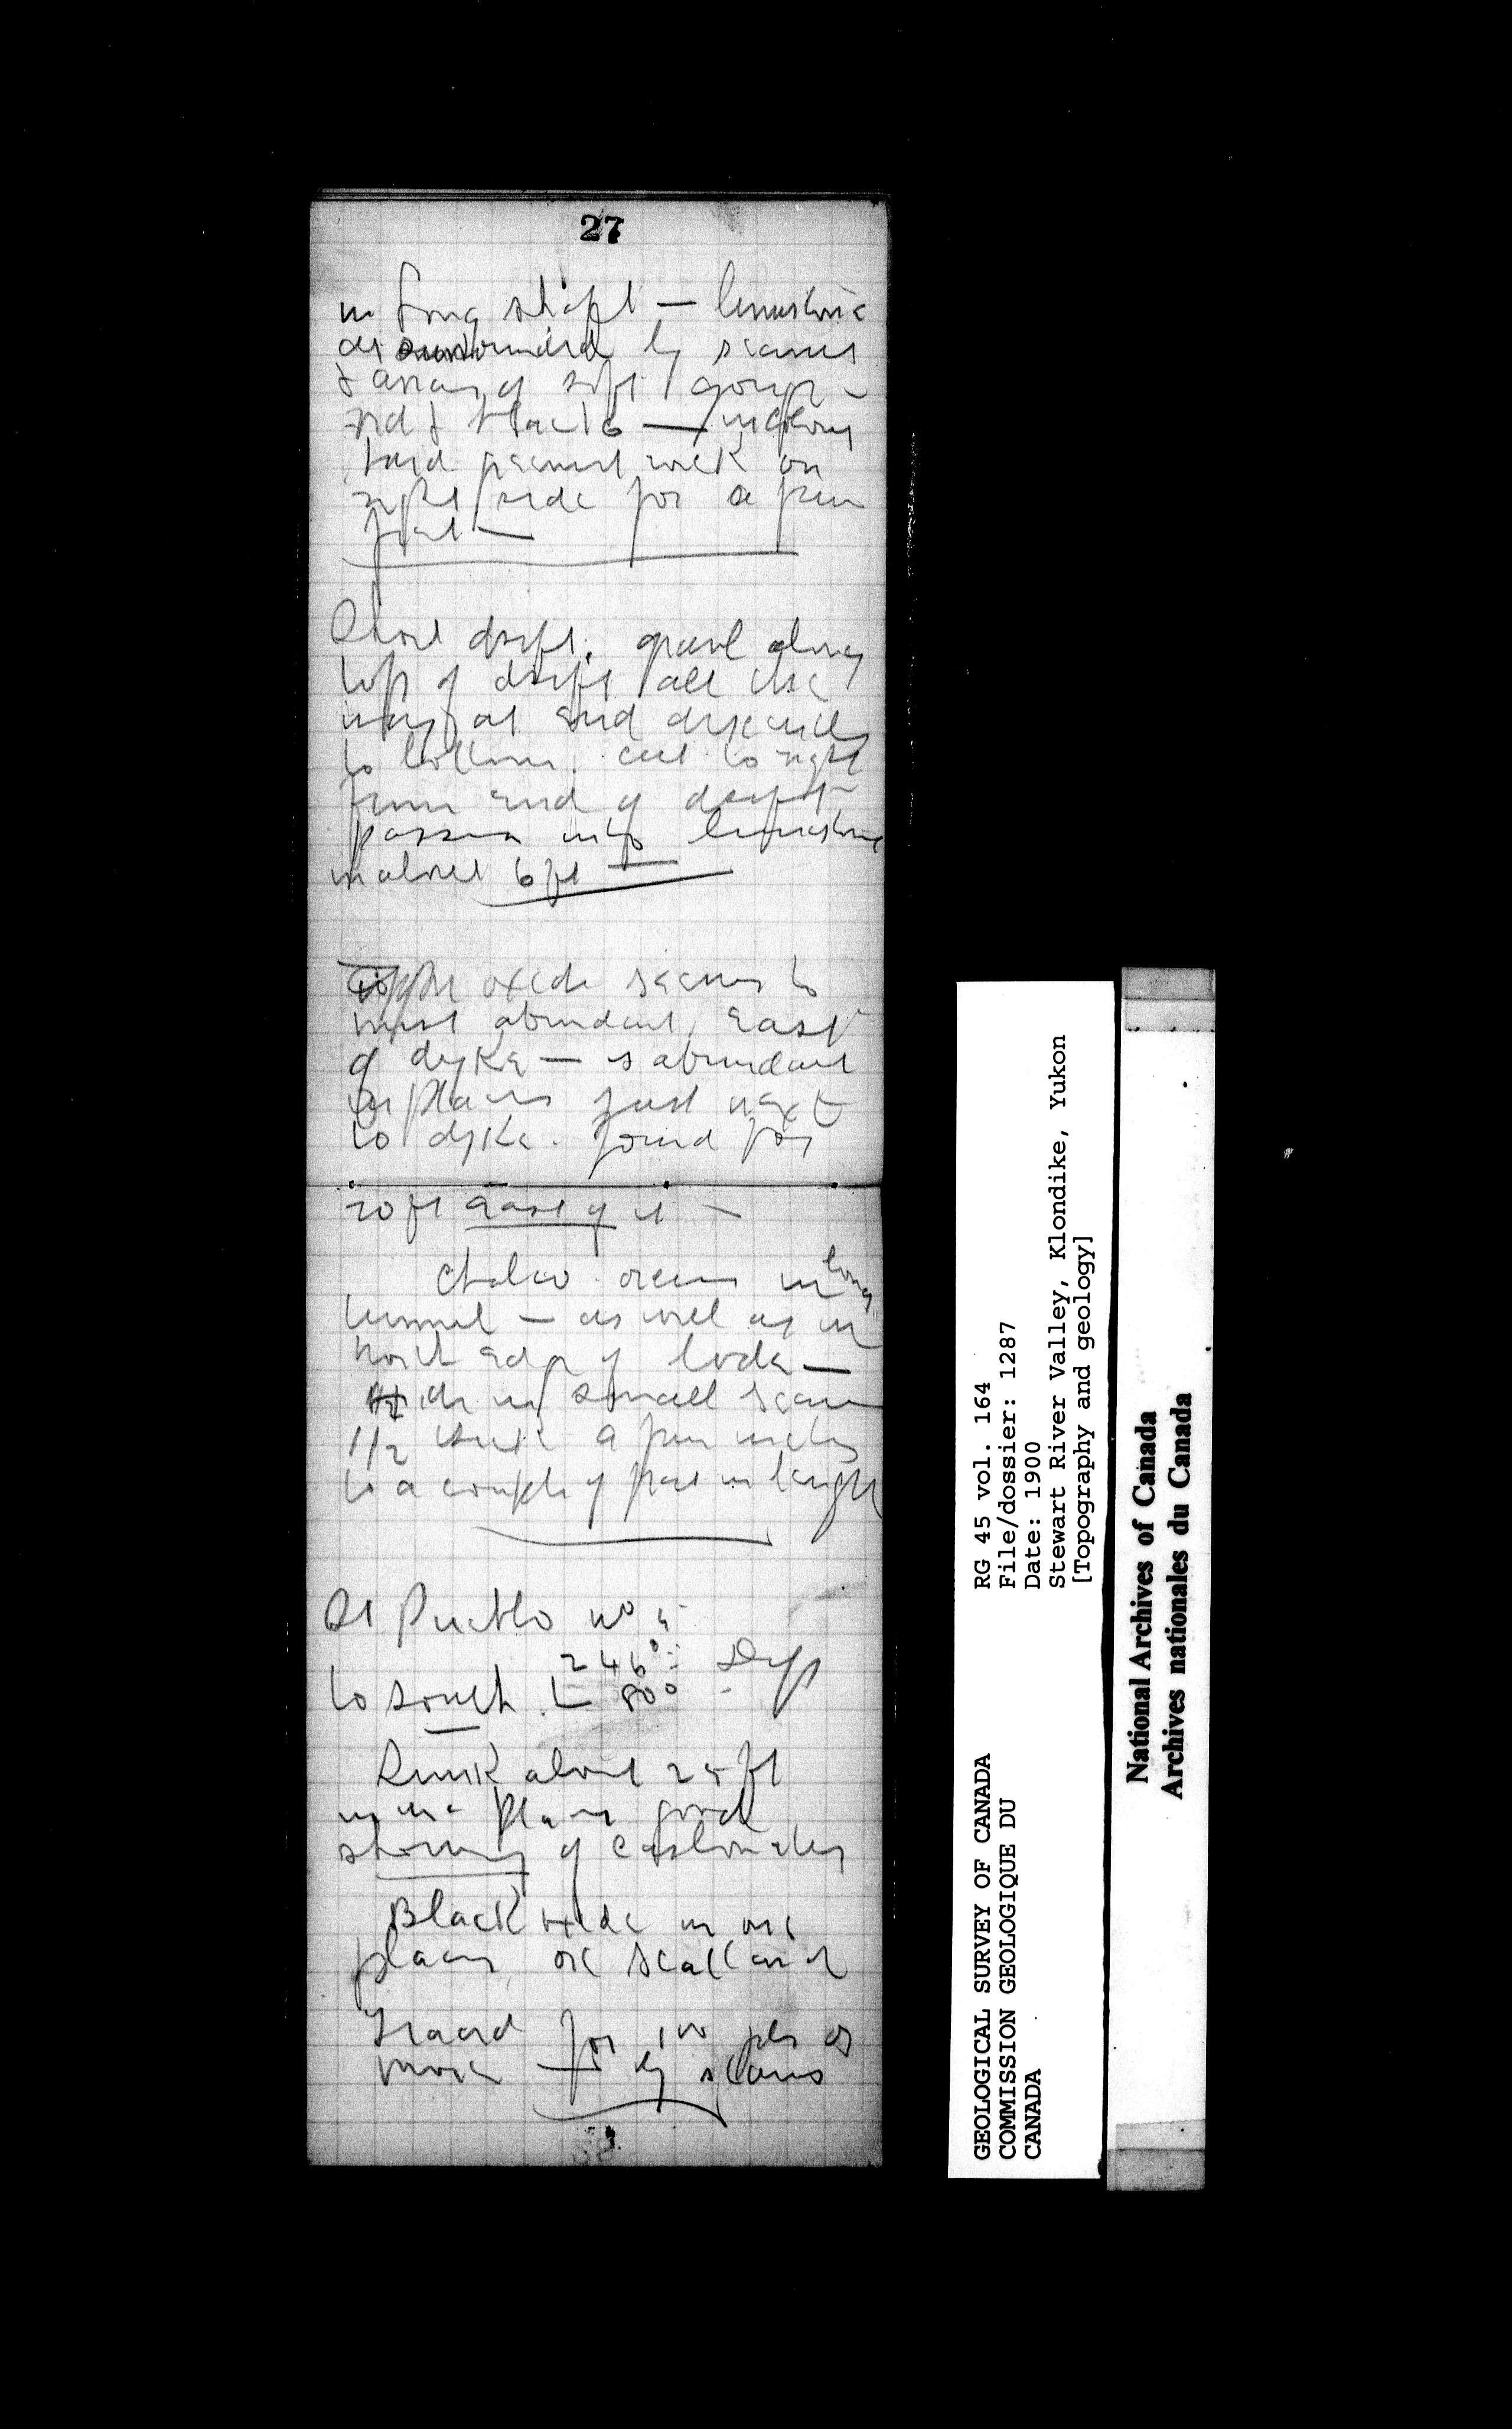 27
in long shaft — limestone
is surrounded by seams
& areas of soft gouge
red & black —
hard green rock on
right side for a few
feet —
Short drift. gravel along
top of drift all the
way at end descends
to bottom. cut to right
from end of drift
passes into limestone
in about 6 ft —
Copper oxide seems to
most abundant East
of dyke — is abundant
in places just next
to dyke. found for
20 ft East of it —
Chalco occurs in long
tunnel — as well as in
north edge of lode —
in small seams
1/2 inch a few inches
to a couple of feet in length
At Pueblo no 5
246° Dip
to South L 80°
Sunk about 25 ft
in one place good
showing of carbonates
Black oxide in one
place, ore scattered
Traced for 100 yds or
more — by
GEOLOGICAL SURVEY OF CANADA
COMMISSION GEOLOGIQUE DU
CANADA
RG 45 vol. 164
File/dossier: 1287
Date: 1900
Stewart River Valley, Klondike, Yukon
[Topography and geology]
National Archives of Canada
Archives nationales du Canada